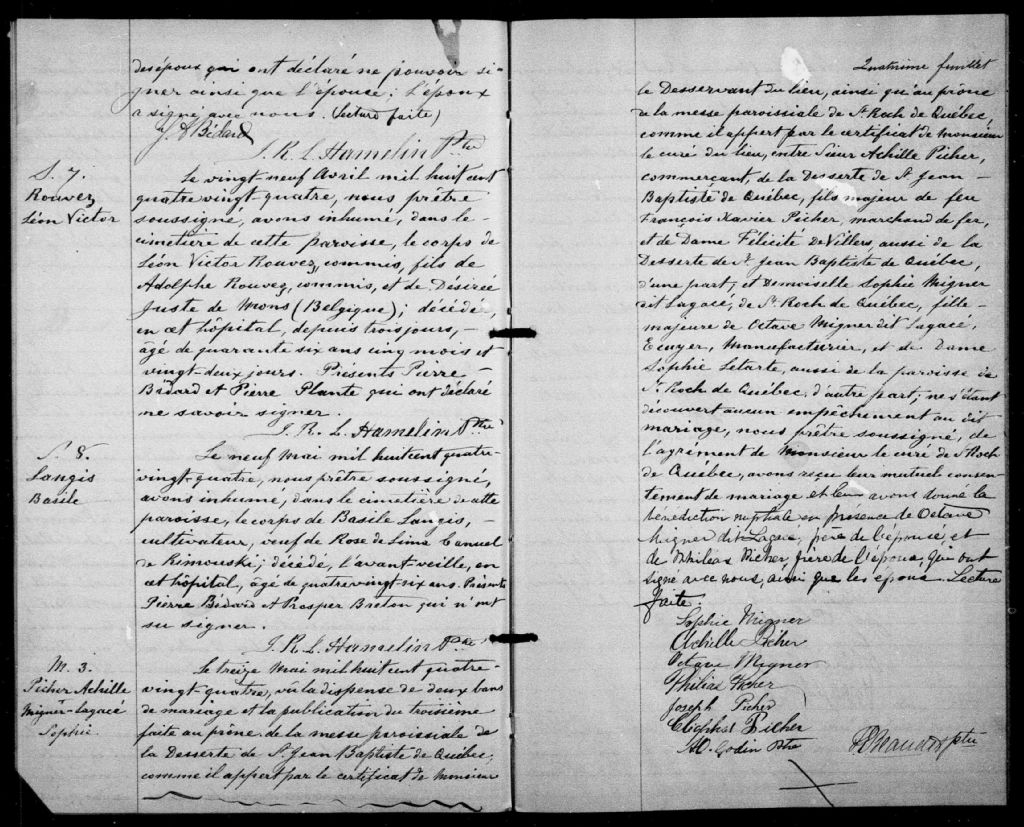 des époux qui ont déclaré ne pouvoir si-
gner ainsi que l'épouse; l'époux
a signé avec nous. (Lecture faite)
Bédard
J. R. L. Hamelin Ptre
S. 7.
Rouvez
Léon Victor
Le vingt neuf Avril mil huit cent
quatrevingt-quatre, nous prêtre
soussigné, avons inhumé, dans le
cimetière de cette paroisse, le corps de
Léon Victor Rouvez, commis, fils de
Adolphe Rouvez, commis, et de Désirée
Juste de Mons (Belgique); décédé,
en cet hôpital, depuis trois jours, -
âgé de quarante six ans cinq mois et
vingt-deux jours. Présents Pierre -
Bédard et Pierre Plante qui ont déclaré
ne savoir signer.
J. R. L. Hamelin Ptre
S. 8.
Langis
Basile
Le neuf Mai mil huit cent quatre-
vingt-quatre, nous prêtre soussigné,
avons inhumé, dans le cimetière de cette
paroisse, le corps de Basile Langis, -
cultivateur, veuf de Rose de Lima Canuel
de Rimouski; décédé, l'avant-veille, en
cet hôpital, âgé de quatrevingt-six ans. Présents
Pierre Bédard et Prosper Breton qui n'ont
su signer.
J. R. L. Hamelin Ptre
M. 3.
Picher Achille
Migner-Lagacé
Sophie
Le treize Mai mil huit cent quatre-
vingt-quatre, vû la dispense de deux bans
de mariage et la publication du troisième
faite au prône de la messe paroissiale de
la Desserte de St. Jean Baptiste de Québec,
comme il appert par le certificat de Monsieur
Quatrième feuillet
le Desservant du lieu, ainsi qu'au prône
de la messe paroissiale de St. Roch de Québec,
comme il appert par le certificat de Monsieur
le curé du lieu, entre Sieur Achille Picher,
commerçant de la Desserte de St. Jean -
Baptiste de Québec, fils majeur de feu
François Xavier Picher, marchand de fer,
et de Dame Félicité DeVillers, aussi de la
Desserte de St. Jean Baptiste de Québec,
d'une part; et Demoiselle Sophie Migner
dit Lagacé, de St. Roch de Québec, fille -
majeure de Octave Migner dit Lagacé,
Ecuyer, Manufacturier, et de Dame
Sophie Letarte, aussi de la paroisse de
St. Roch de Québec, d'autre part; ne s'étant
découvert aucun empêchement au dit
mariage, nous prêtre soussigné, de
l'agrément de Monsieur le curé de St. Roch
de Québec, avons reçu leur mutuel consen-
tement de mariage et leur avons donné la
bénédiction nuptiale en présence de Octave
Migner dit Lagacé, père de l'épouse, et
de Philéas Picher, frère de l'époux, qui ont
signé avec nous, ainsi que les époux. Lecture
faite.
Sophie Migner
Achille Picher
Octave Migner
Philias Picher
Joseph Picher
Picher
Godin Ptre
ptre